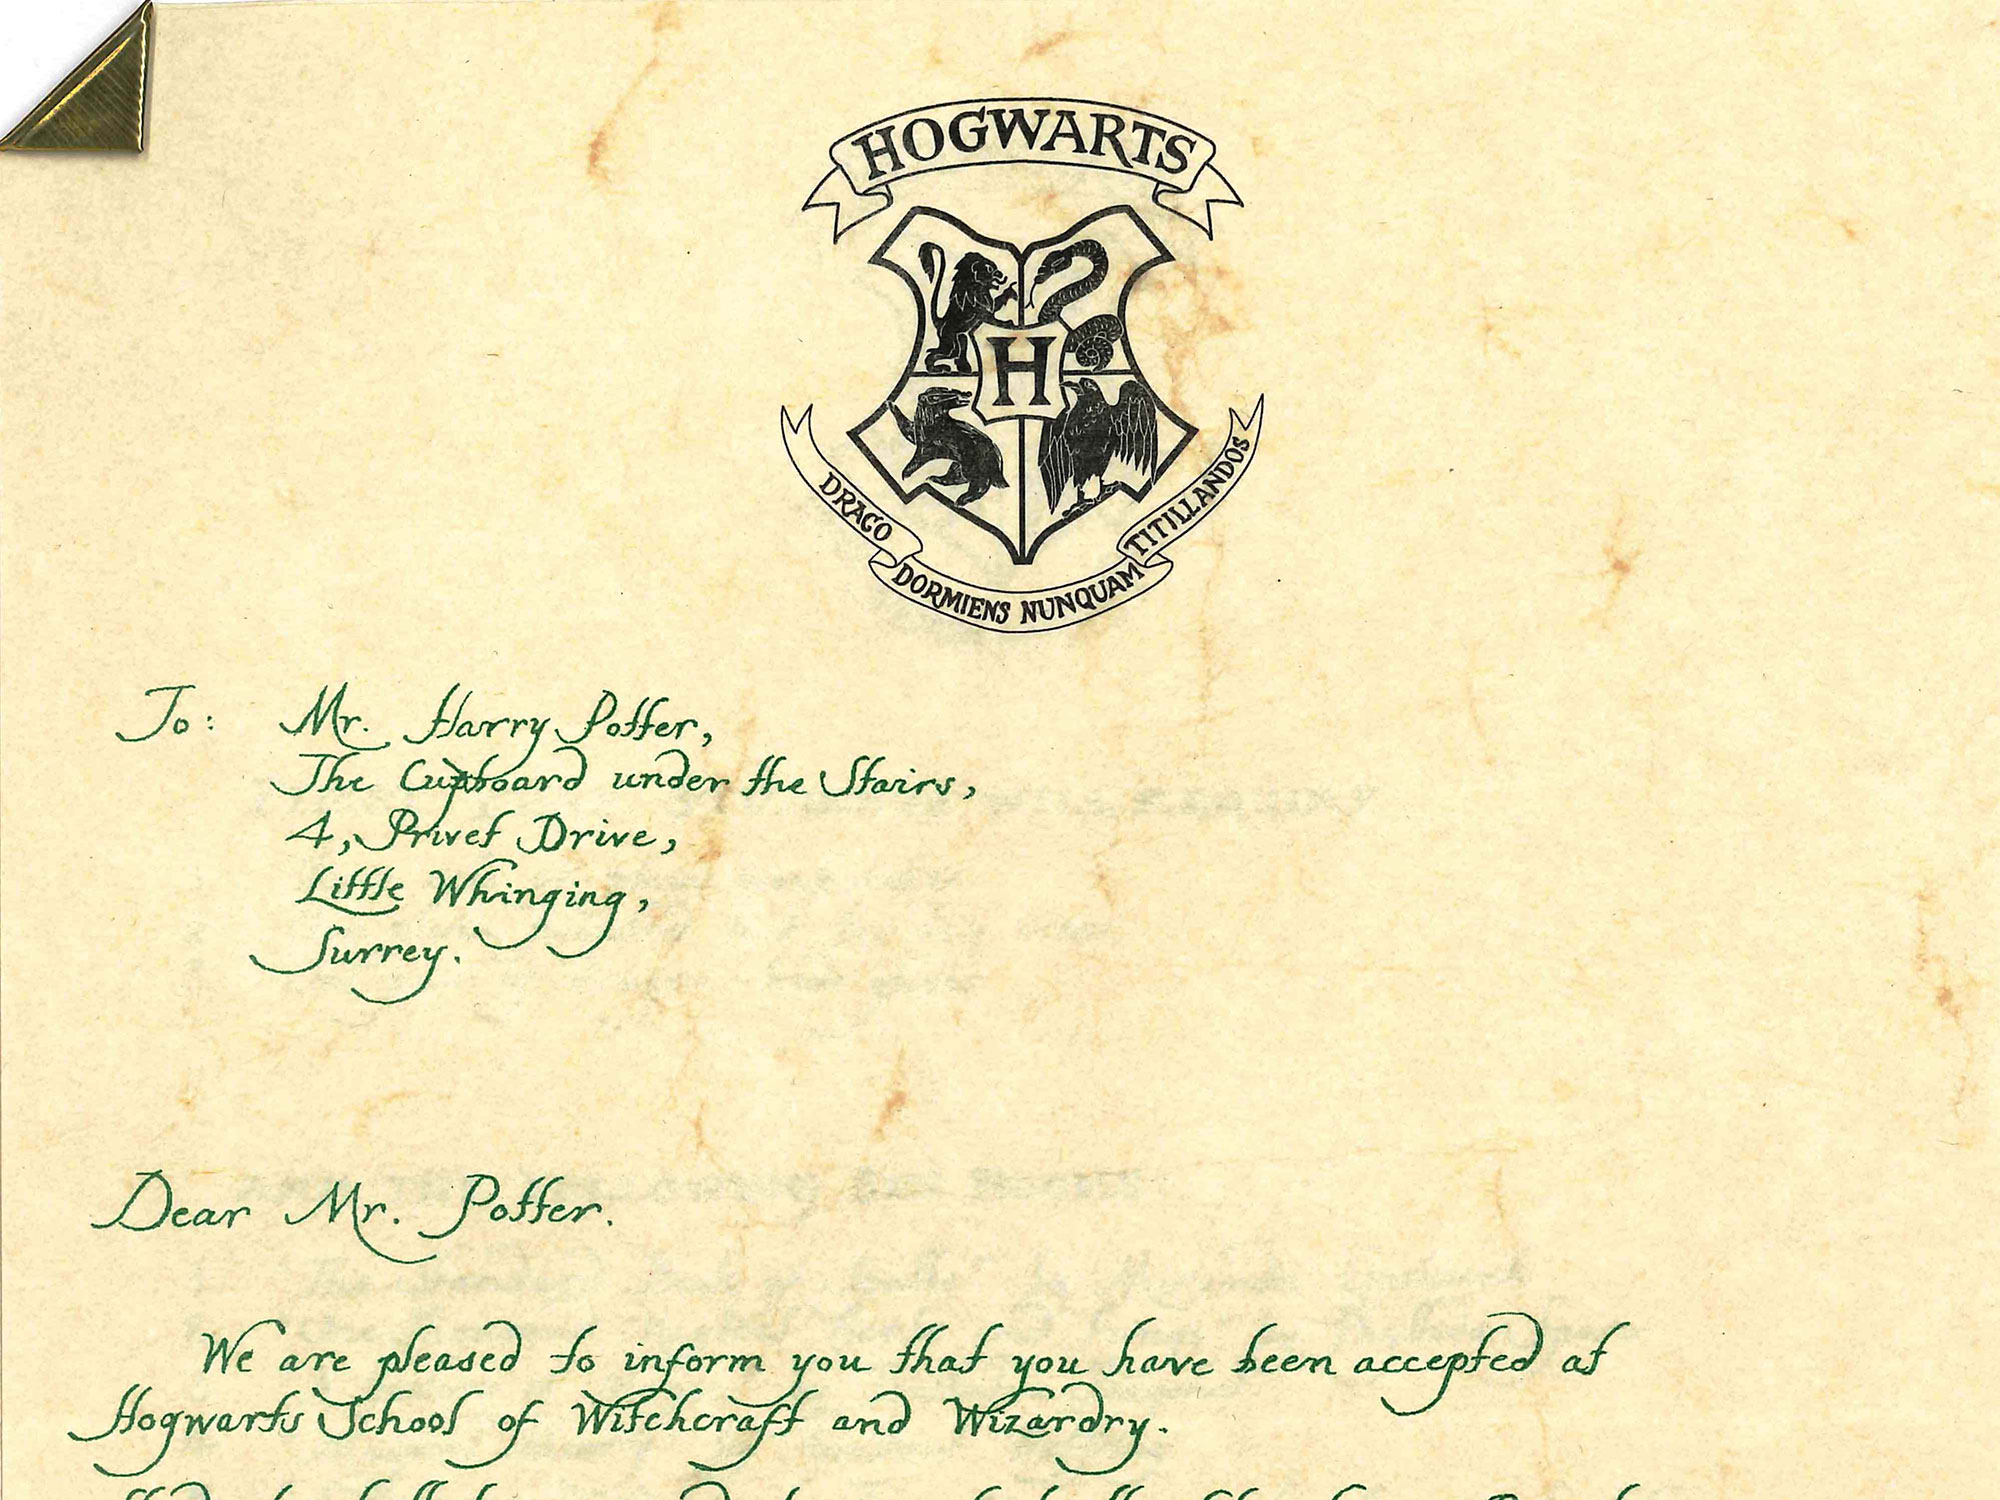 HOGWARTS
H
DRACO DORMIENS NUNQUAM TITILLANDOS
To: Mr. Harry Potter,
The Cupboard under the Stairs,
4, Privet Drive,
Little Whinging,
Surrey.
Dear Mr. Potter.
We are pleased to inform you that you have been accepted at
Hogwarts School of Witchcraft and Wizardry.